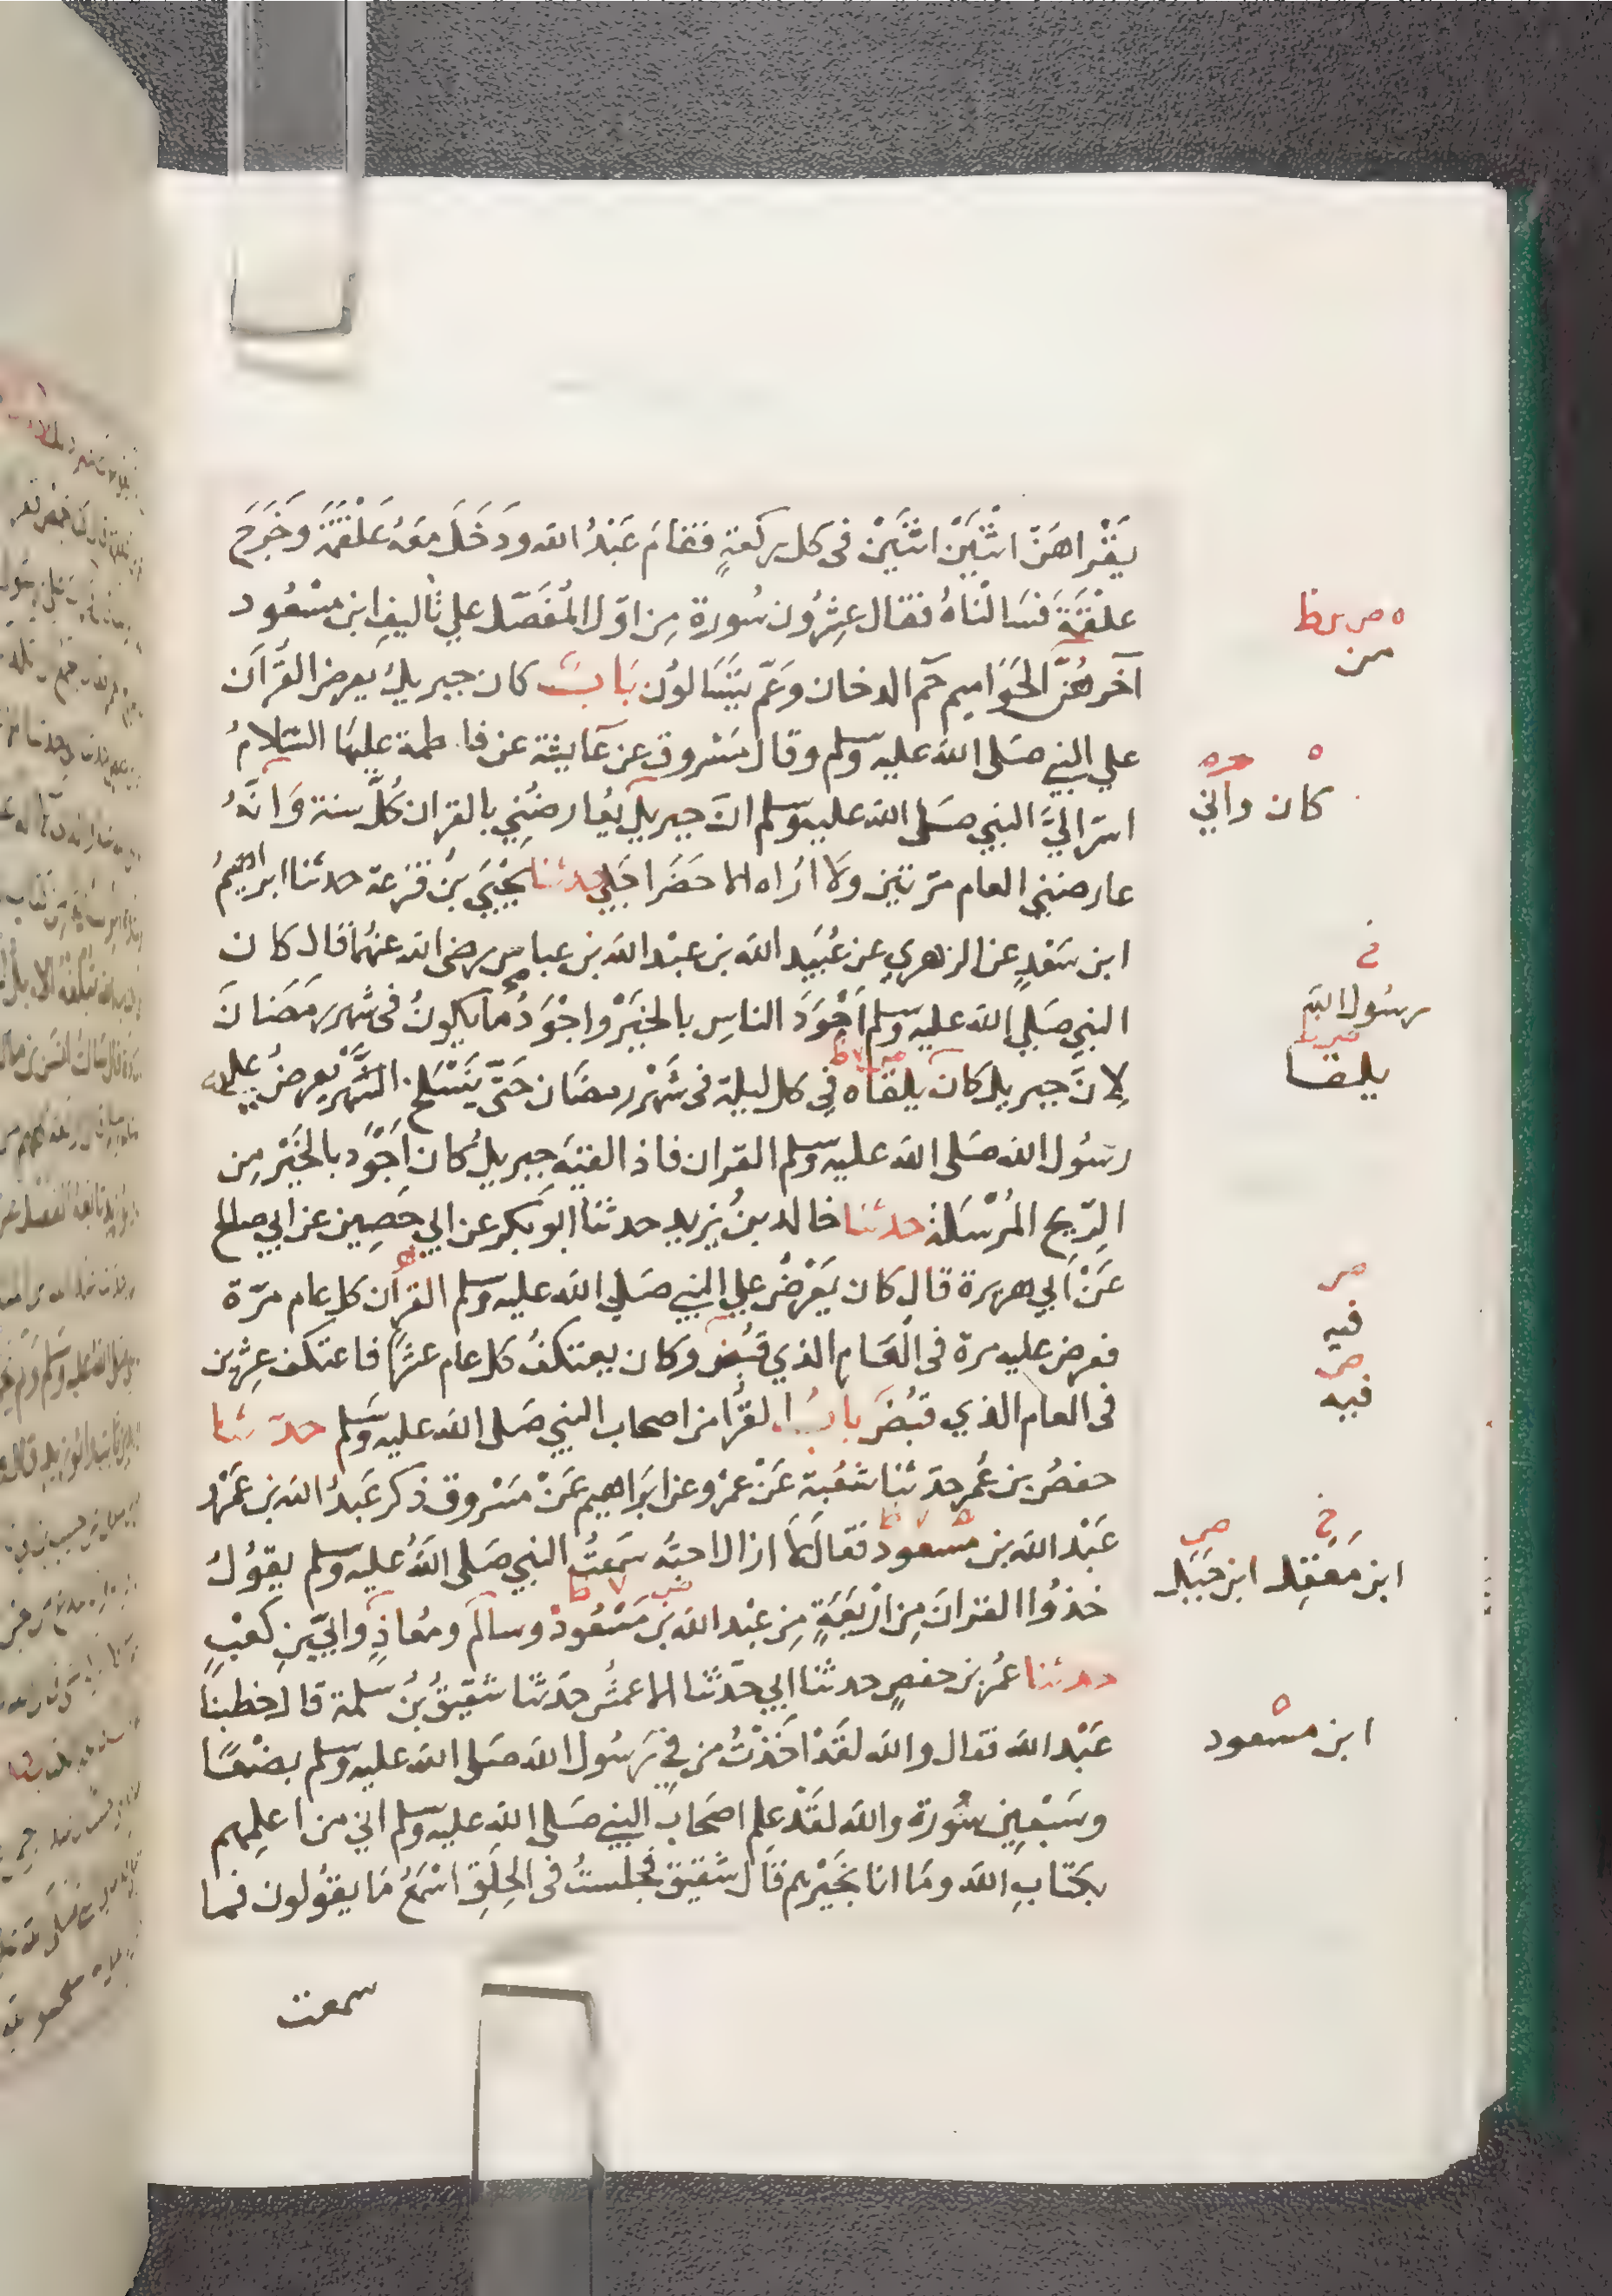 يَقْراهَنّ اثْنَيَنْ اثنَيَنْ فى كل ركعةٍ فقامَ عَبْدُ الله ودَخَلَ معَهُ عَلْقَمَةَ وَخَرَجَ
علْقَمَة فَسَالْنَاهُ فقال عِشرُون سُورة مِن اوّل المُفَصّل علي تاليفِ ابن مسْعُود
آخرهُنّ الحَوَاميم حٓم الدخان وَعَمّ يتَسَالوُن بَابُ كان جبريلُ يعرض القُرآن
علي النبي صَلى الله عليه وسلم وقال مَسْروق عن عَايشة عن فاطمة عليهَا السّلامُ
اسَرّ اليَّ النبي صَلى الله عليه وسلم انّ جبريل يُعارضُنِي بالقران كُلّ سنة وَانّهُ
عارضنِي العام مرّتين ولَا ارُاه الا حَضَر اجَلي حدثنا يَحْيَي بنُ قزعة حدثنا ابراهيمُ
ابن سَعْدٍ عن الزهري عن عُبَيَد الله بن عبْد الله بن عباس رضى الله عنهُما قال كان
النبي صَلي الله عليه وسلم اجْوَدَ الناسِ بالخيَرْ واجْوَدُ مَا يكونُ فى شهر رمَضَانَ
لِانَّ جبريل كان يلقاه فِي كل ليلة فى شَهْر رمضَان حَتّى يَنْسَلخ الشَّهْر يعرضُ عليه
رسُول الله صَلى الله عليه وسلم القران فاذا لقيَهَ جبريلُ كان اجْوَد بالخَيْر مِن
الرّيح المُرْسَلة حدثنا خالد بنُ يزيد حدثنا ابو بكر عن ابي حَصِين عن ابي صالح
عَنْ اَبي هريرة قال كان يَعْرْضُ علي النبي صَلي الله عليه وسلم القرآن كل عام مرّة
فعرض عليه مرة فى العَام الذي قُبُض وكان يعتكفُ كل عام عشرًا فاعتكف عِشرِين
فى العام الذي قبُضَ بابُ القُرا من اصحاب النبي صَلى الله عليه وسَلم حدّثنا
حفصُ بن عُمر حدّثنا شعُبة عَنْ عَمْرٍو عن ابرَاهيم عَنْ مَسْروق ذكر عَبدُ الله بن عَمْرٍو
عَبْد الله بن مسْعود فقال لَا ازال احبّه سَمعتُ النبي صَلى اللهُ عليه وسلم يقوُلُ
خذوُا القرانَ مِن ارْبَعَةٍ مِن عبْد الله بن مَسْعُودْ وسالم ومعُاذٍ وابيّ بنِ كعْبٍ
حدثنا عمُر بن حفصٍ حدثنا ابي حدّثنا الاعمش حدّثنا شقيقُ بنُ سلمة قال خطبنا
عَبْد الله فقال والله لقَدْ اخَذْتُ من فِي رَسُول الله صَلى الله عليه وسلم بضْعًا
وسَبْعِين سُورة والله لقَدْ علم اصَحَاب النبي صَلى الله عليه وسلم اني من اعلمِهم
بكتَابِ الله ومَا انا بخَيْرهم قال شقيق فجلستُ فى الحِلَقِ اسْمَعُ مَا يقوُلون فما
سمعت
ه ص س ط
من
كان واني
خ
رسُول الله
يلقا
ص
فيه
ص
فيه
خ ص
ابن مَعَقِل ابن جَبَل
ه
ابن مسْعود